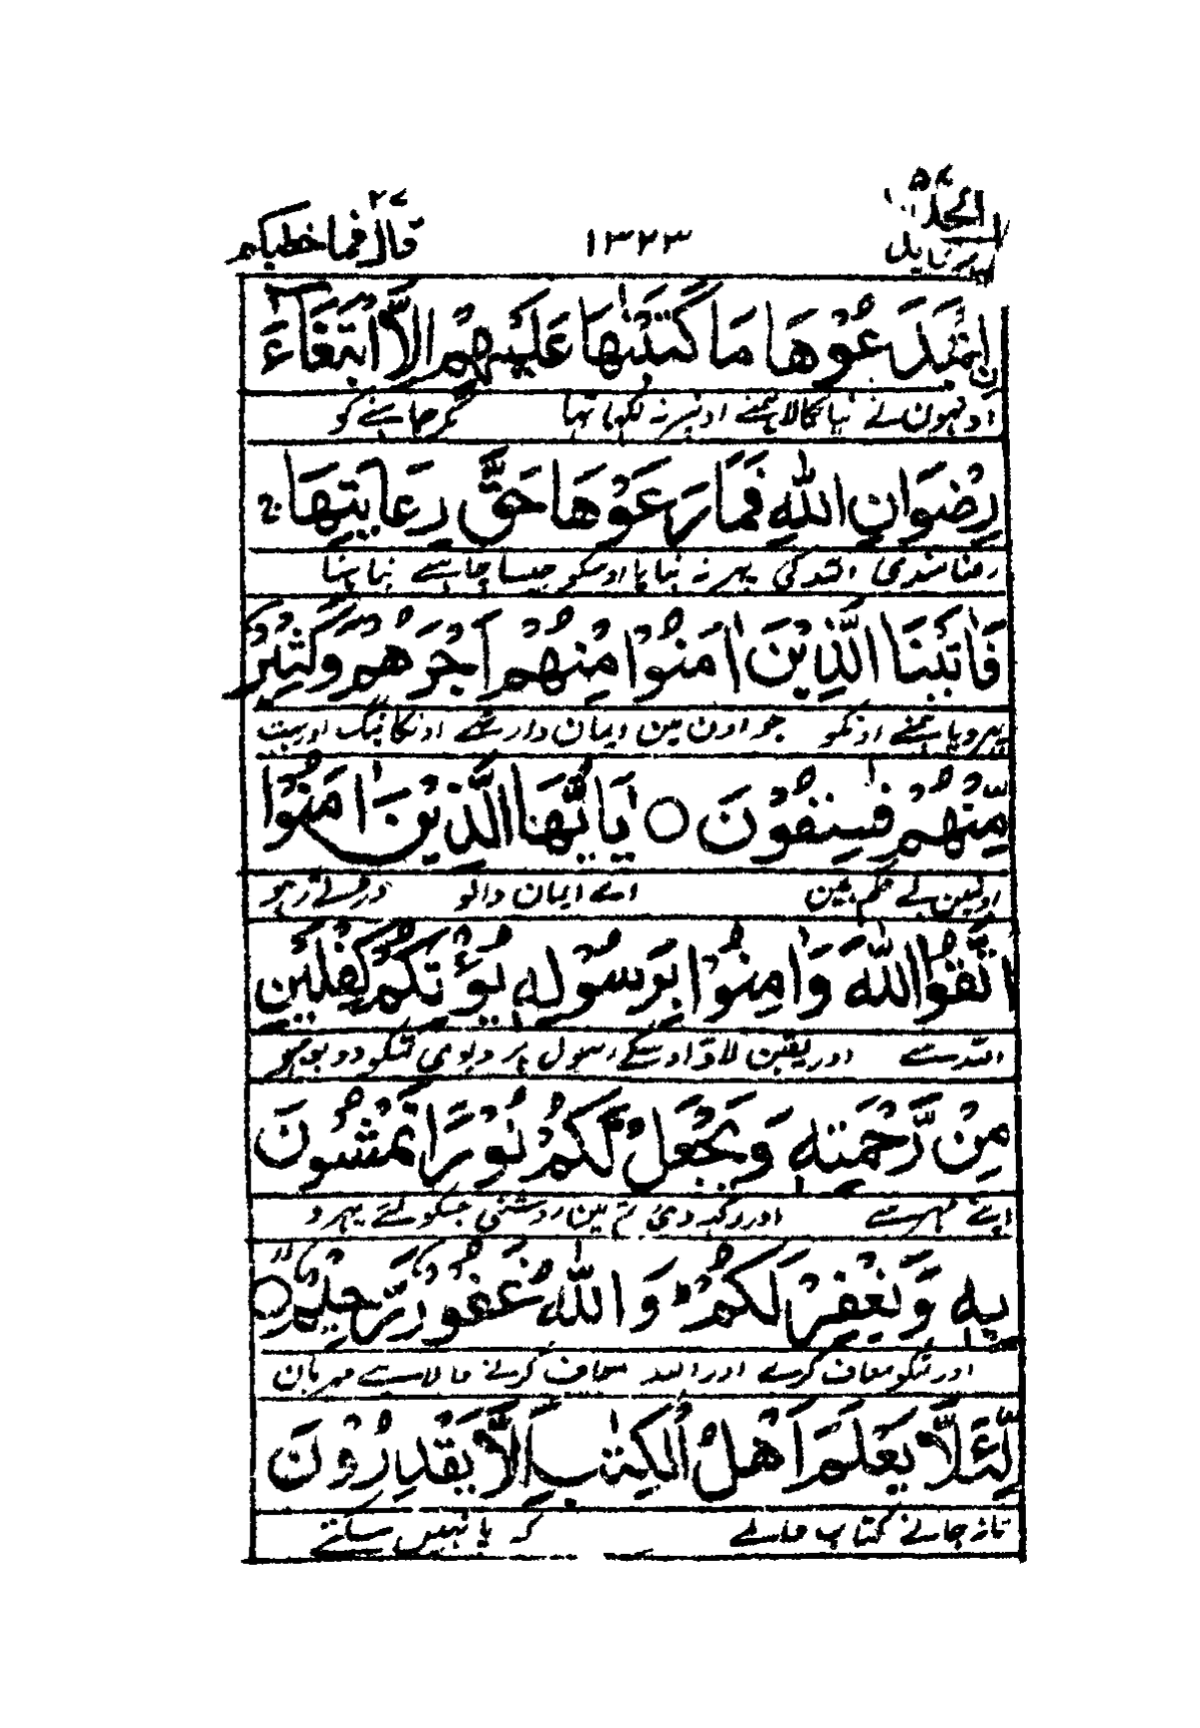 الحدید ۵۷
۱۳۲۳
قال فما خطبکم ۲۷
ابْتَدَعُوْهَا مَا كَتَبْنٰهَا عَلَيْهِمْ اِلَّا ابْتِغَآءَ
اونہون نے نیا نکالا ہمنے اونپر نہ لکھا تہا مگر چاہنے کو
رِضْوَانِ اللّٰهِ فَمَا رَعَوْهَا حَقَّ رِعَايَتِهَا ج
رضامندی اللہ کی پہر نہ نباہا اوسکو جیسا چاہئے نباہنا
فَاٰتَيْنَا الَّذِيْنَ اٰمَنُوْا مِنْهُمْ اَجْرَهُمْ وَكَثِيْرٌ
پہر دیا ہمنے اونکو جو اون مین ایمان دار تھے اونکا نیگ اور بہت
مِّنْهُمْ فٰسِقُوْنَ ○ يٰاَيُّهَا الَّذِيْنَ اٰمَنُوا
اونمین بے حکم ہین اے ایمان والو ڈرتے رہو
اتَّقُوا اللّٰهَ وَاٰمِنُوْا بِرَسُوْلِهٖ يُؤْتِكُمْ كِفْلَيْنِ
اللہ سے اور یقین لاؤ اوسکے رسول پر دیوی تمکو دو بوجھ
مِنْ رَّحْمَتِهٖ وَيَجْعَلْ لَّكُمْ نُوْرًا تَمْشُوْنَ
اپنے مہر سے اور رکہدے تم مین روشنی جسکو لئے پہرو
بِهٖ وَيَغْفِرْ لَكُمْ ط وَاللّٰهُ غَفُوْرٌ رَّحِيْمٌ ○
اور تمکو معاف کرے اور اللہ معاف کرنے والا ہے مہربان
لِّئَلَّا يَعْلَمَ اَهْلُ الْكِتٰبِ اَلَّا يَقْدِرُوْنَ
تا نہ جانے کتاب والے کہ پا نہیں سکتے